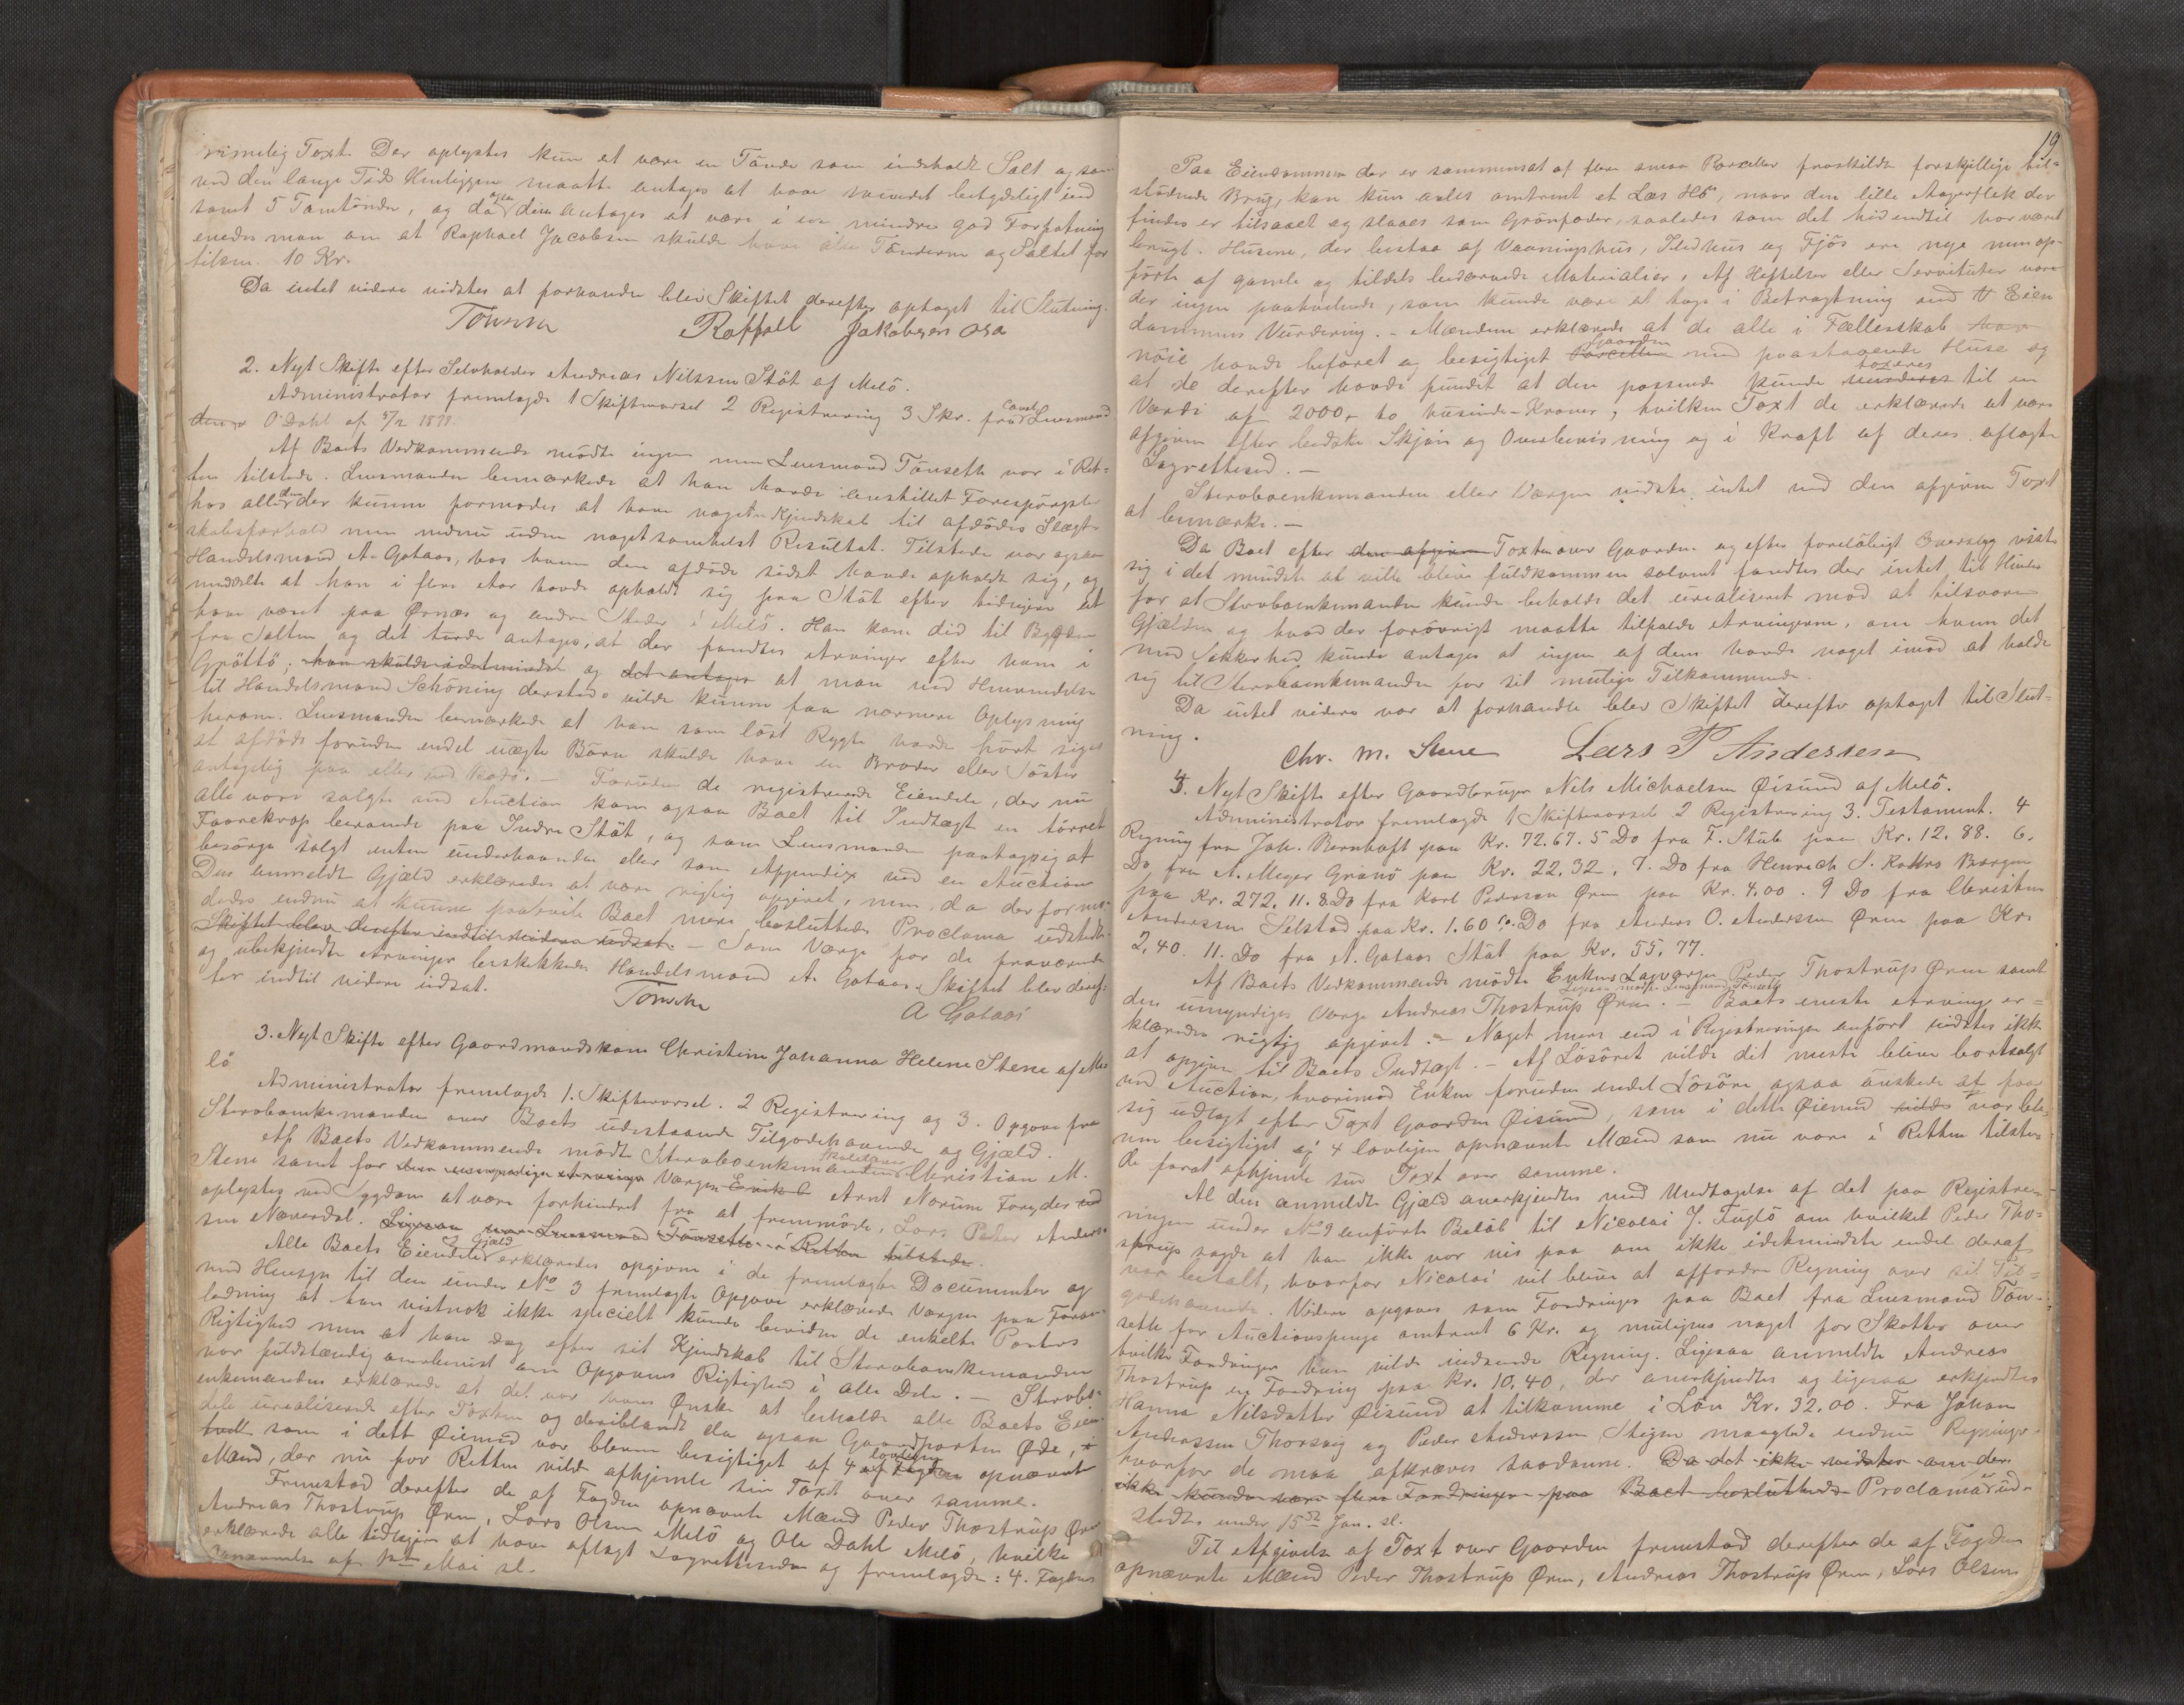 rimelig Taxt. Der oplystes kun at være en Tønde som indeholdt Salt og som
ved den lange Tids Henliggen maatte antages at have svundet betydeligt ind
samt 5 Tomtønder, og da ogsaa disse antages at være i en mindre god Forfatning
enedes man om at Raphael Jacobsen skulde have alle Tønderne og Saltet for
tilsm. 10 Kr.
Da intet videre vidstes at forhandle blev Skiftet derefter optaget til Slutning.
Tønseth Raffall Jakobsen osa
2. Nyt Skifte efter Selvholder Andreas Nilssen Støt af Melø.
Administrator fremlagde 1 Skiftevarsel 2 Registrering 3 Skr. fra const Lensmand
O Dahl af 5/2 1877.
Af Boets Vedkommende mødte ingen men Lensmand Tønseth var i Ret-
ten tilstede. Lensmanden bemærkede at han havde anstillet Forespørgsler
hos alle dem der kunne formodes at have noget Kjendskab til afdødes Slægt-
skabsforhold men endnu uden nogetsomhelst Resultat. Tilstede var ogsaa
Handelsmand A. Gataas, hos hvem den afdøde sidst havde opholdt sig, og
meddelte at han i flere Aar havde opholdt sig paa Støt efter tidligere at
have været paa Ørnæs og andre Steder i Melø. Han kom did til Bygden
fra Salten og det turde antages, at der fandtes Arvinger efter ham i
Grøttø, han skulde idetmindste og det antages at man ved Henvendelse
til Handelsmand Schöning dersteds vilde kunne faa nærmere Oplysning
herom. Lensmanden bemærkede at han som løst Rygte havde hørt sige
at afdøde foruden endel uægte Børn skulde have en Broder eller Søster
antagelig paa eller ved Bodø. – Foruden de registrerede Eiendele, der nu
alle vare solgte ved Auction kom ogsaa Boet til Indtægt en tørret
Faarekrop beroende paa Indre Støt, og som Lensmanden paatog sig at
besørge solgt enten underhaanden eller som Appendix ved en Auction
Den anmeldte Gjæld erklæredes at være rigtig opgivet, men da der formo-
dedes endnu at kunne paahvile Boet mere besluttedes Proclama udstedt.
Skiftet blev derefter indtil videre udsat. – Som Værge for de fraværende
og ubekjendte Arvinger beskikkedes Handelsmand A. Gataas. Skiftet blev deref-
ter indtil videre udsat.
Tønseth A Gataas
3. Nyt Skifte efter Gaardmandskone Christine Johanna Helene Stene af Me-
lø
Administrator fremlagde 1. Skiftevarsel. 2 Registrering og 3. Opgave fra
Stervboenkemanden over Boets udestaaende Tilgodehavende og Gjæld.
Af Boets Vedkommende mødte Stervboenkemanden Skolelærer Christian M.
Stene samt for den umyndige Arvinge Værgen Arnt Norum Forøs, der ved
oplystes ved Sygdom at være forhindret fra at fremmøde, Lars Peder Anders-
sen Neverdal. Ligesaa var Lensmand Tønseth i Retten tilstede.
Alle Boets Eiendele og Gjæld erklæredes opgivne i de fremlagte Documenter og
med Hensyn til den under No 3 fremlagte Opgave erklærede Værgen paa Foran-
ledning at han vistnok ikke specielt kunde bevidne de enkelte Posters
Rigtighed men at han dog efter sit Kjendskab til Stervboenkemanden
var fuldstændig overbevist om Opgavens Rigtighed i alle Dele. – Stervbo-
enkemanden erklærede at det var hans Ønske at beholde alle Boets Eien-
dele urealiserede efter Taxten og deriblandt da ogsaa Gaardparten Øde,
som i dette Øiemed var bleven besigtiget af 4 lovligen opnævnte
Mænd, der nu for Retten vilde afhjemle sin Taxt over samme.
Fremstod derefter de af Fogden opnævnte Mænd Peder Thostrup Ørn
Andreas Thostrup Ørn, Lars Olsen Melø og Ole Dahl Melø, hvilke
erklærede alle tidligere at have aflagt Lagrettesed og fremlagde: 4. Fogdens
Opnævnelse af Mai sl.
19
Paa Eiendommen der er sammensat af flere smaa Parceller fraskildte forskjellige til-
stødende Brug, kan kun avles omtrent et Læs Hø, naar den lille Agerflek der
findes er tilsaaet og slaaes som Grønfoder, saaledes som det hidendtil har været
brugt. Husene, der bestaa af Vaaningshus, Ildhus og Fjøs ere nye men op-
førte af gamle og tildels bedærvede Materialier. Af Heftelser eller Servituter vare
der ingen paahvilende, som kunde være at tage i Betragtning ved Eien
dommens Vurdering. – Mændene erklærede at de alle i Fællesskab har
nøie havde befaret og besigtiget Parcellen Gaarden med paastaaende Huse og
at de derefter havde fundet at den passende kunde vurderes taxeres til en
Værdi af 2000, to tusinde – Kroner, hvilken Taxt de erklærede at være
afgiven efter bedste Skjøn og Overbevisning og i Kraft af deres aflagte
Lagrettesed. –
Stervboenkemanden eller Værgen vidste intet ved den afgivne Taxt
at bemærke. –
Da Boet efter den afgivne Taxten over Gaarden og efter foreløbigt Overslag viste
sig i det mindste at ville blive fuldkommen solvent fandtes der intet til Hinder
for at Stervboenkemanden kunde beholde det urealiseret mod at tilsvare
Gjælden og hvad der forøvrigt maatte tilfalde Arvingerne, om hvem det
med Sikkerhed kunde antages at ingen af dem havde noget imod at holde
sig til Stervboenkemanden for sit mulige Tilkommende.
Da intet videre var at forhandle blev Skiftet derefter optaget til Slut-
ning.
Chr. M. Stene Lars P Andersen
4. Nyt Skifte efter Gaardbruger Nels Michaelsen Øisund af Melø.
Administrator fremlagde 1 Skiftevarsel 2 Registrering 3. Testament. 4
Regning fra Joh. Bernhoft paa Kr. 72.67. 5 Do fra F. Stub paa Kr. 12.88. 6.
Do fra A. Meyer Grønø paa Kr. 22.32. 7. Do fra Henrich S. Bergen
paa Kr. 272.11. 8 Do fra Karl Pedersen Ørn paa Kr. 4.00. 9 Do fra Christen
Anderssen Selstad paa Kr. 1.60 10. Do fra Anders O. Anderssen Ørn paa Kr.
2,40. 11. Do fra A. Gataas Støt paa Kr. 55,77.
Af Boets Vedkommende mødte Enkens Lagværge Peder Thostrup Ørn samt
Ligesaa mødte Lensmand Tønseth
den umyndiges Værge Andreas Thostrup Ørn. – Boets eneste Arving er-
klæredes rigtig opgivet. – Noget mere end i Registreringen anført vidstes ikke
at opgive til Boets Indtægt. – Af Løsøret vilde det meste blive bortsolgt
ved Auction, hvorimod Enken foruden endel Løsøre ogsaa ønskede at faa
sig udlagt efter Taxt Gaarden Øisund, som i dette Øiemed var ble-
ven besigtiget af 4 lovligen opnævnte Mænd som nu vare i Retten tilste-
de forat afhjemle sin Taxt over samme.
Al den anmeldte Gjæld anerkjendtes med Undtagelse af det paa Registre-
ringen under No 9 anførte Beløb til Nicolai J. Fuglø om hvilket Peder Tho-
strup sagde at han ikke var vis paa om ikke idetmindste endel deraf
var betalt, hvorfor Nicolai vil blive at affordre Regning over sit Til-
godehavende. Videre opgaves som Fordringer paa Boet fra Lensmand Tøn-
seth for Auctionspenge omtrent 6 Kr. og muligens noget for Skatter over
hvilke Fordringer han vilde indsende Regning. Ligesaa anmeldte Andreas
Thostrup en Fordring paa Kr. 10.40, der anerkjendtes og ligesaa erkjendtes
Hanna Nilsdatter Øisund at tilkomme i Løn Kr. 32.00. Fra Johan
Anderssen Thorsvig og Peder Anderssen Stigen manglede endnu Regninger
hvorfor de maa afkræves saadanne. Da det ikke vidstes om der
ikke kunde være flere Fordringer paa Boet besluttedes Proclama er ud-
stedt under 15de Jan. sl.
Til Afgivelse af Taxt over Gaarden fremstod derefter de af Fogden
opnævnte Mænd Peder Thostrup Ørn, Andreas Thostrup Ørn, Lars Olsen